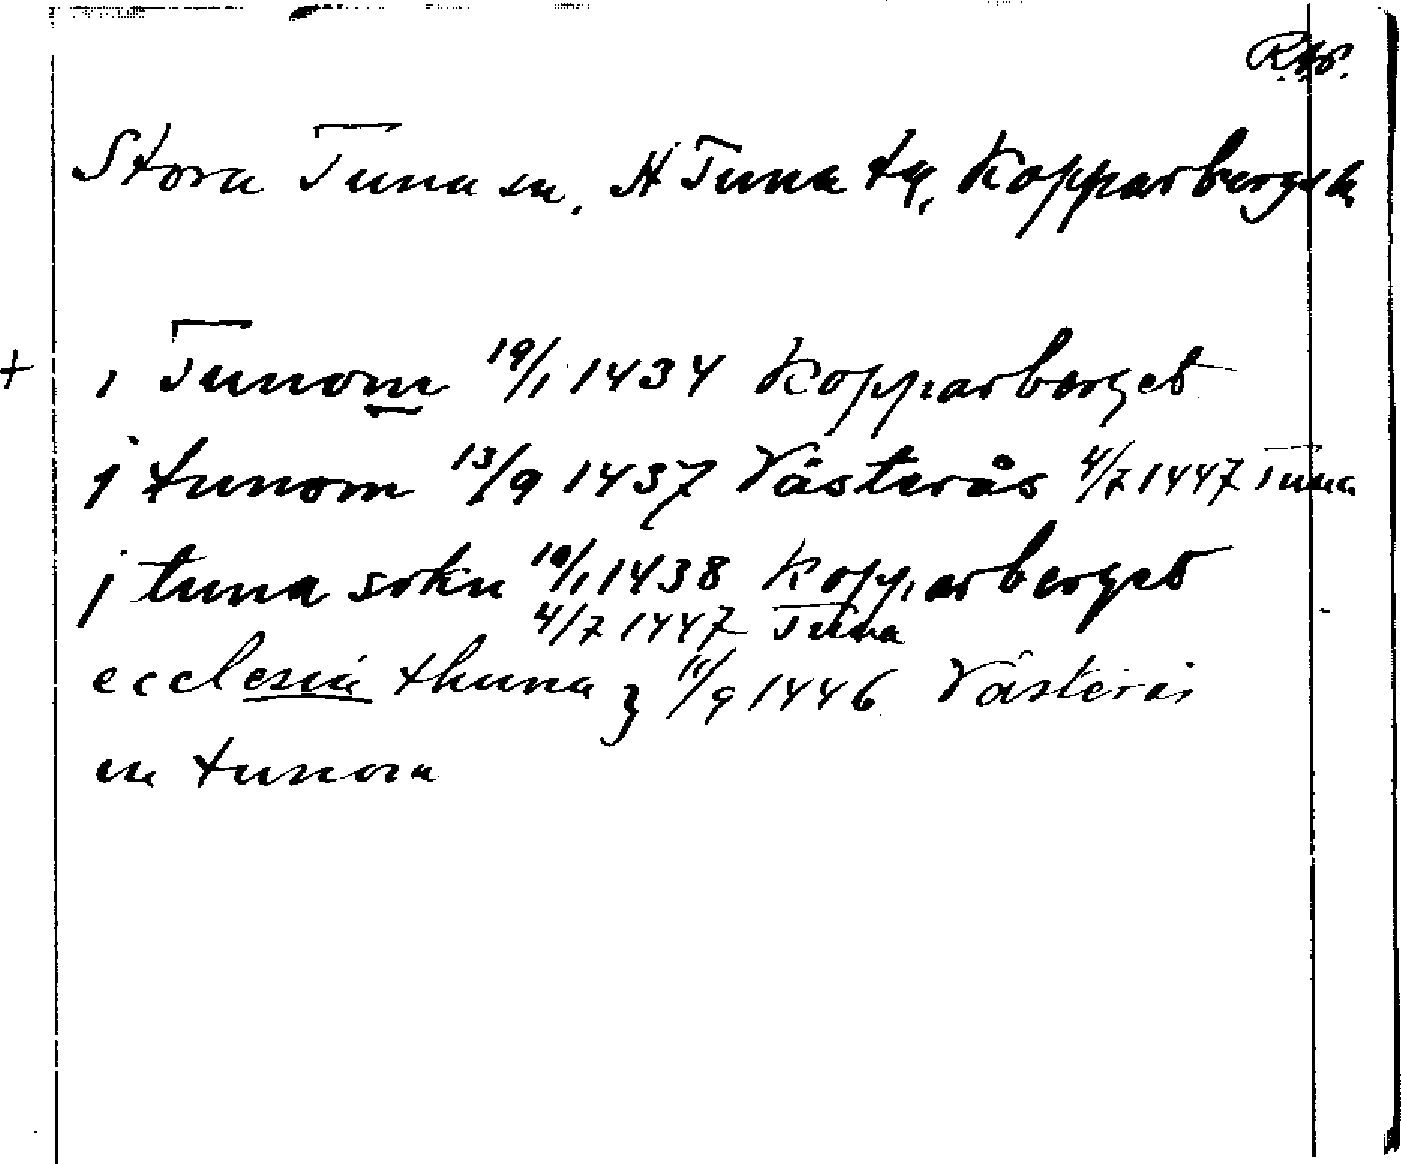 R.A.P.
Stora Tuna sn. St Tuna tg, Kopparbergs l.
+ i Tunom 19/1 1434 Kopparberget
j tunom 13/9 1437 Västerås 4/7 1447 Tuna
j tuna sokn 10/1 1438 Kopparberget
4/7 1447 Tuna
ecclesia thuna } 11/9 1446 Västerås
en tunom